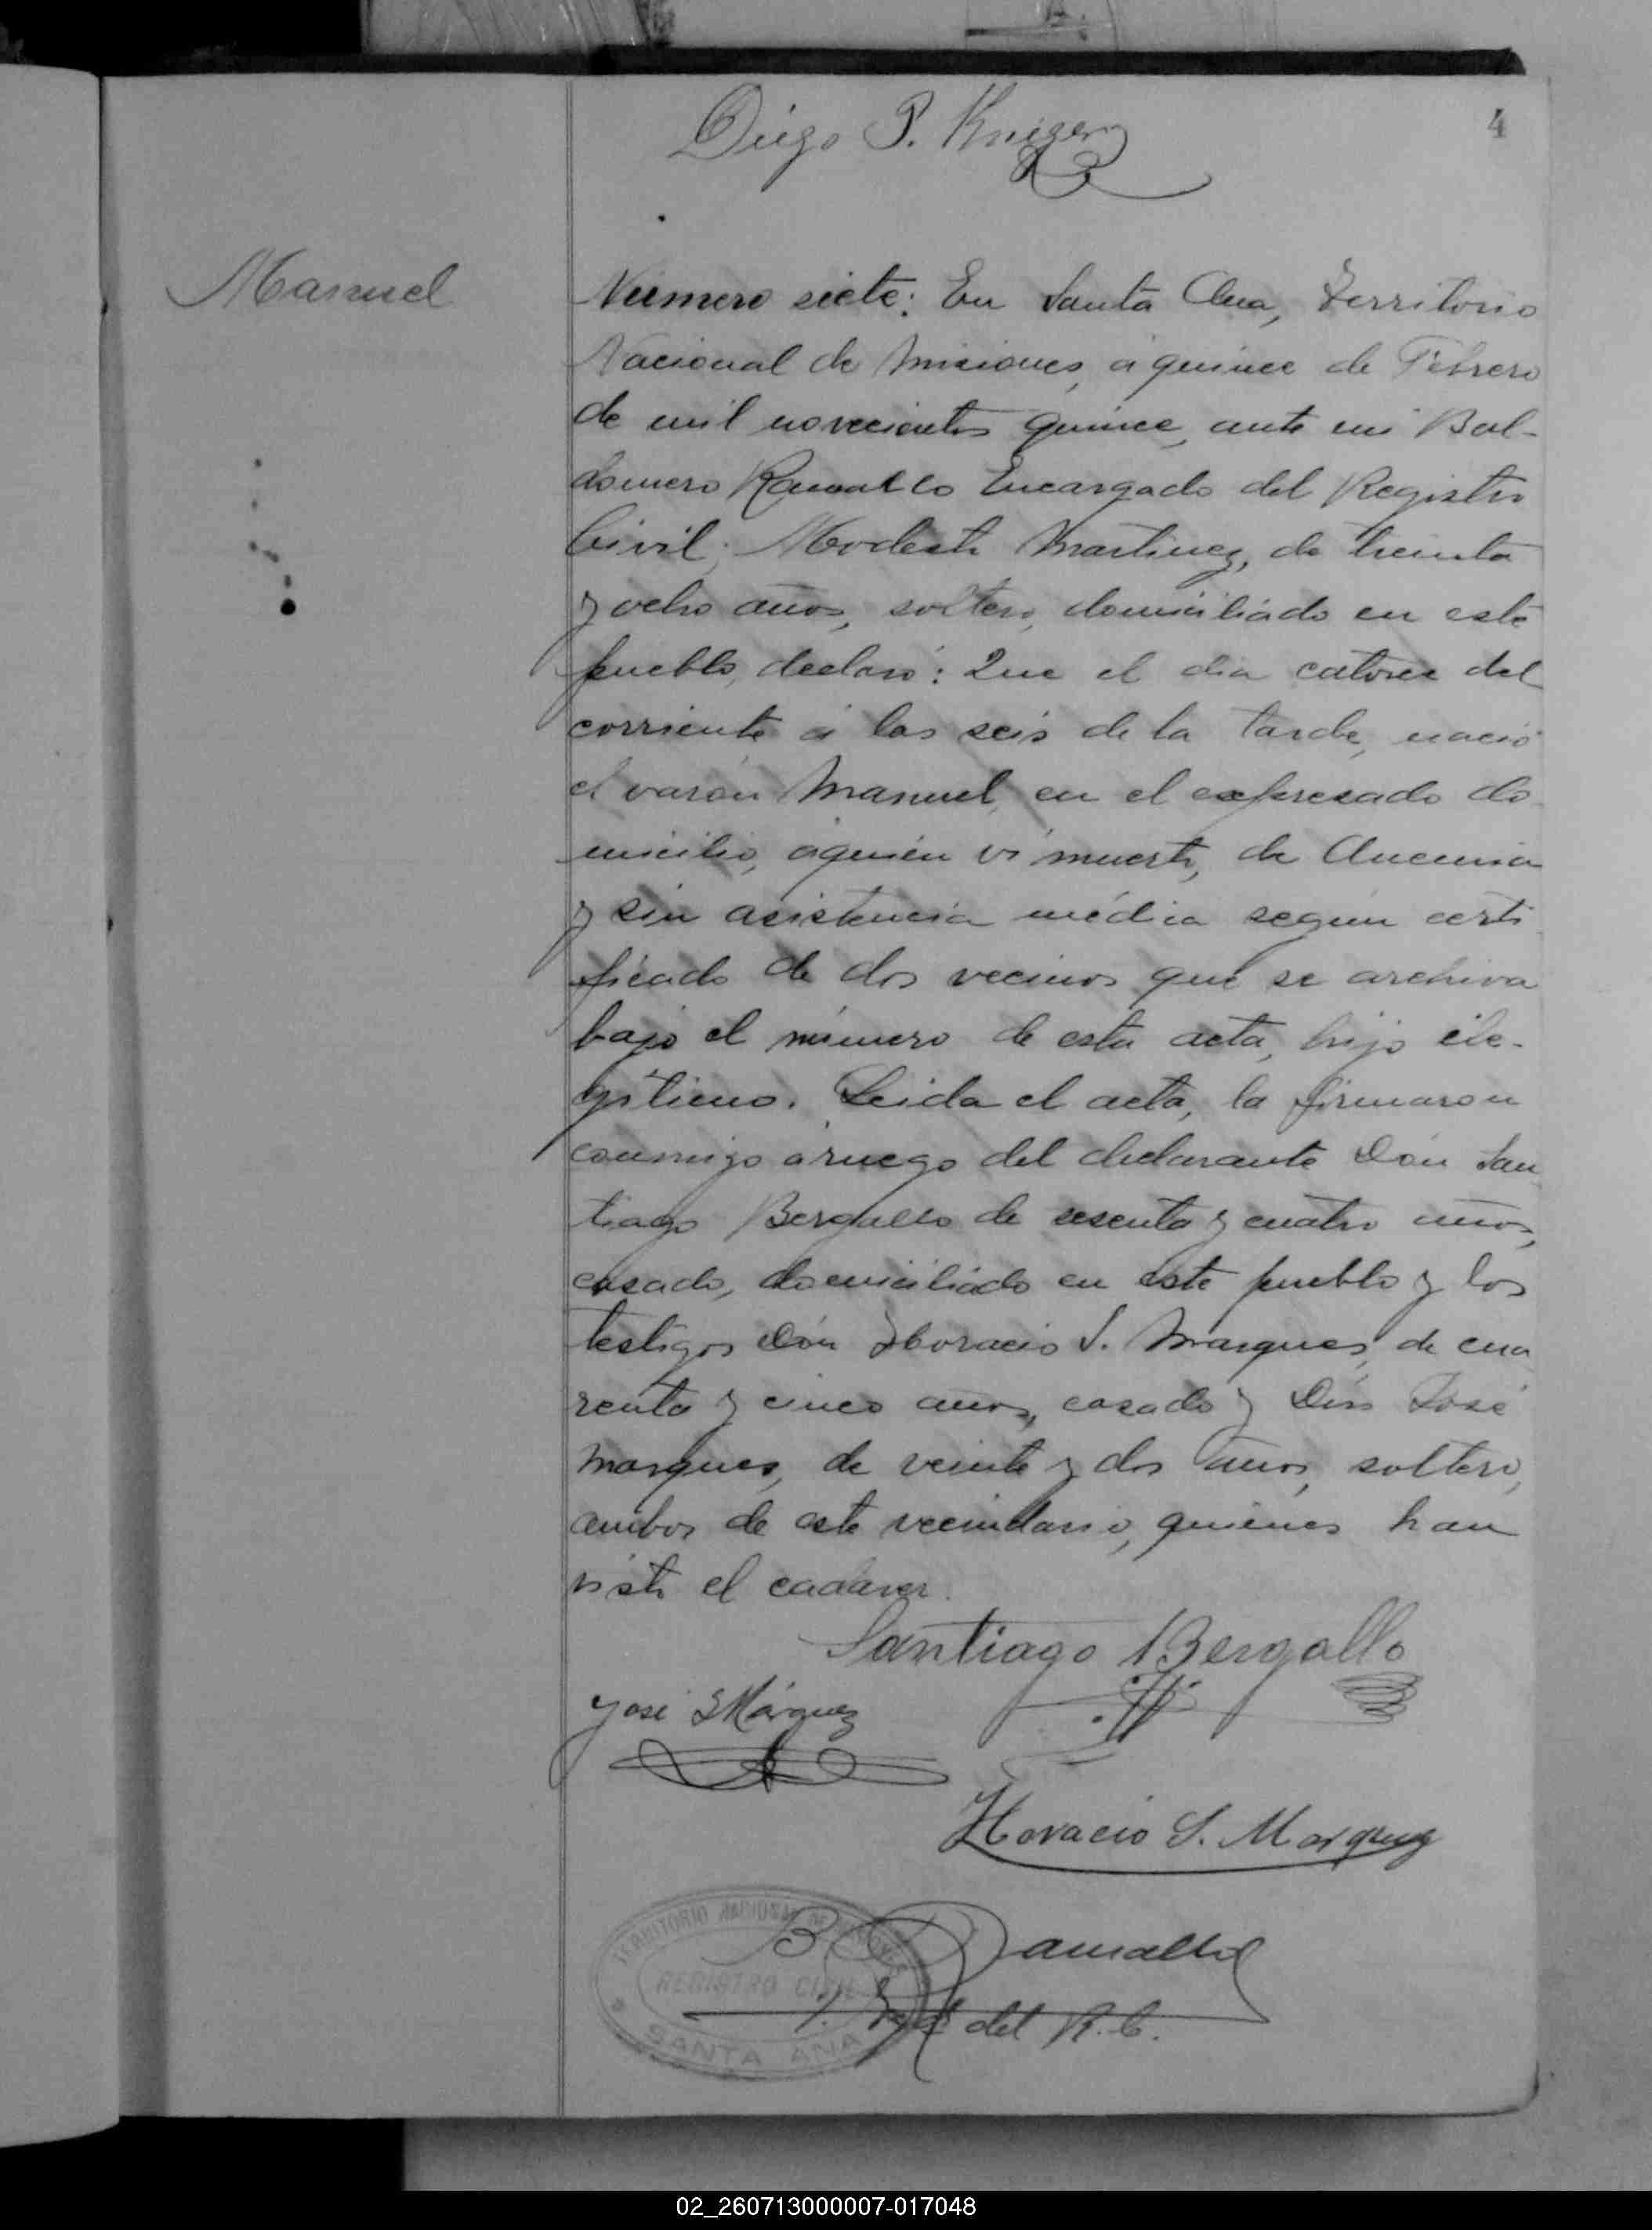 4
Diego P. Kruger
Manuel
Número siete: En Santa Ana, Territorio
Nacional de Misiones, á quince de Febrero
de mil novecientos quince, ante mi Bal-
domero Ramallo Encargado del Registro
Civil; Modesto Martinez, de treinta
y ocho años, soltero, domiciliado en este
pueblo, declaró: Que el dia catorce del
corriente á las seis de la tarde, nació
el varón Manuel, en el expresado do
micilio, áquien ví muerto, de Anemia
y sin asistencia médica según certi
ficado de dos vecinos que se archiva
bajo el número de esta acta, hijo ile-
gítimo. Leida el acta, la firmaron
conmigo áruego del declarante Dón San
tiago Bergallo de sesenta y cuatro años,
casado, domiciliado en este pueblo y los
testigos Dón Horacio S. Marques, de cua
renta y cinco años, casado y Dón José
Marques, de veinte y dos años, soltero,
ambos de este vecindario, quienes han
visto el cadaver.
Santiago Bergallo
José S Márquez
Horacio S. Marquez
B Ramallo
del R. C.
TERRITORIO NACIONAL DE MISIONES
REGISTRO CIVIL
SANTA ANA
02_260713000007-017048